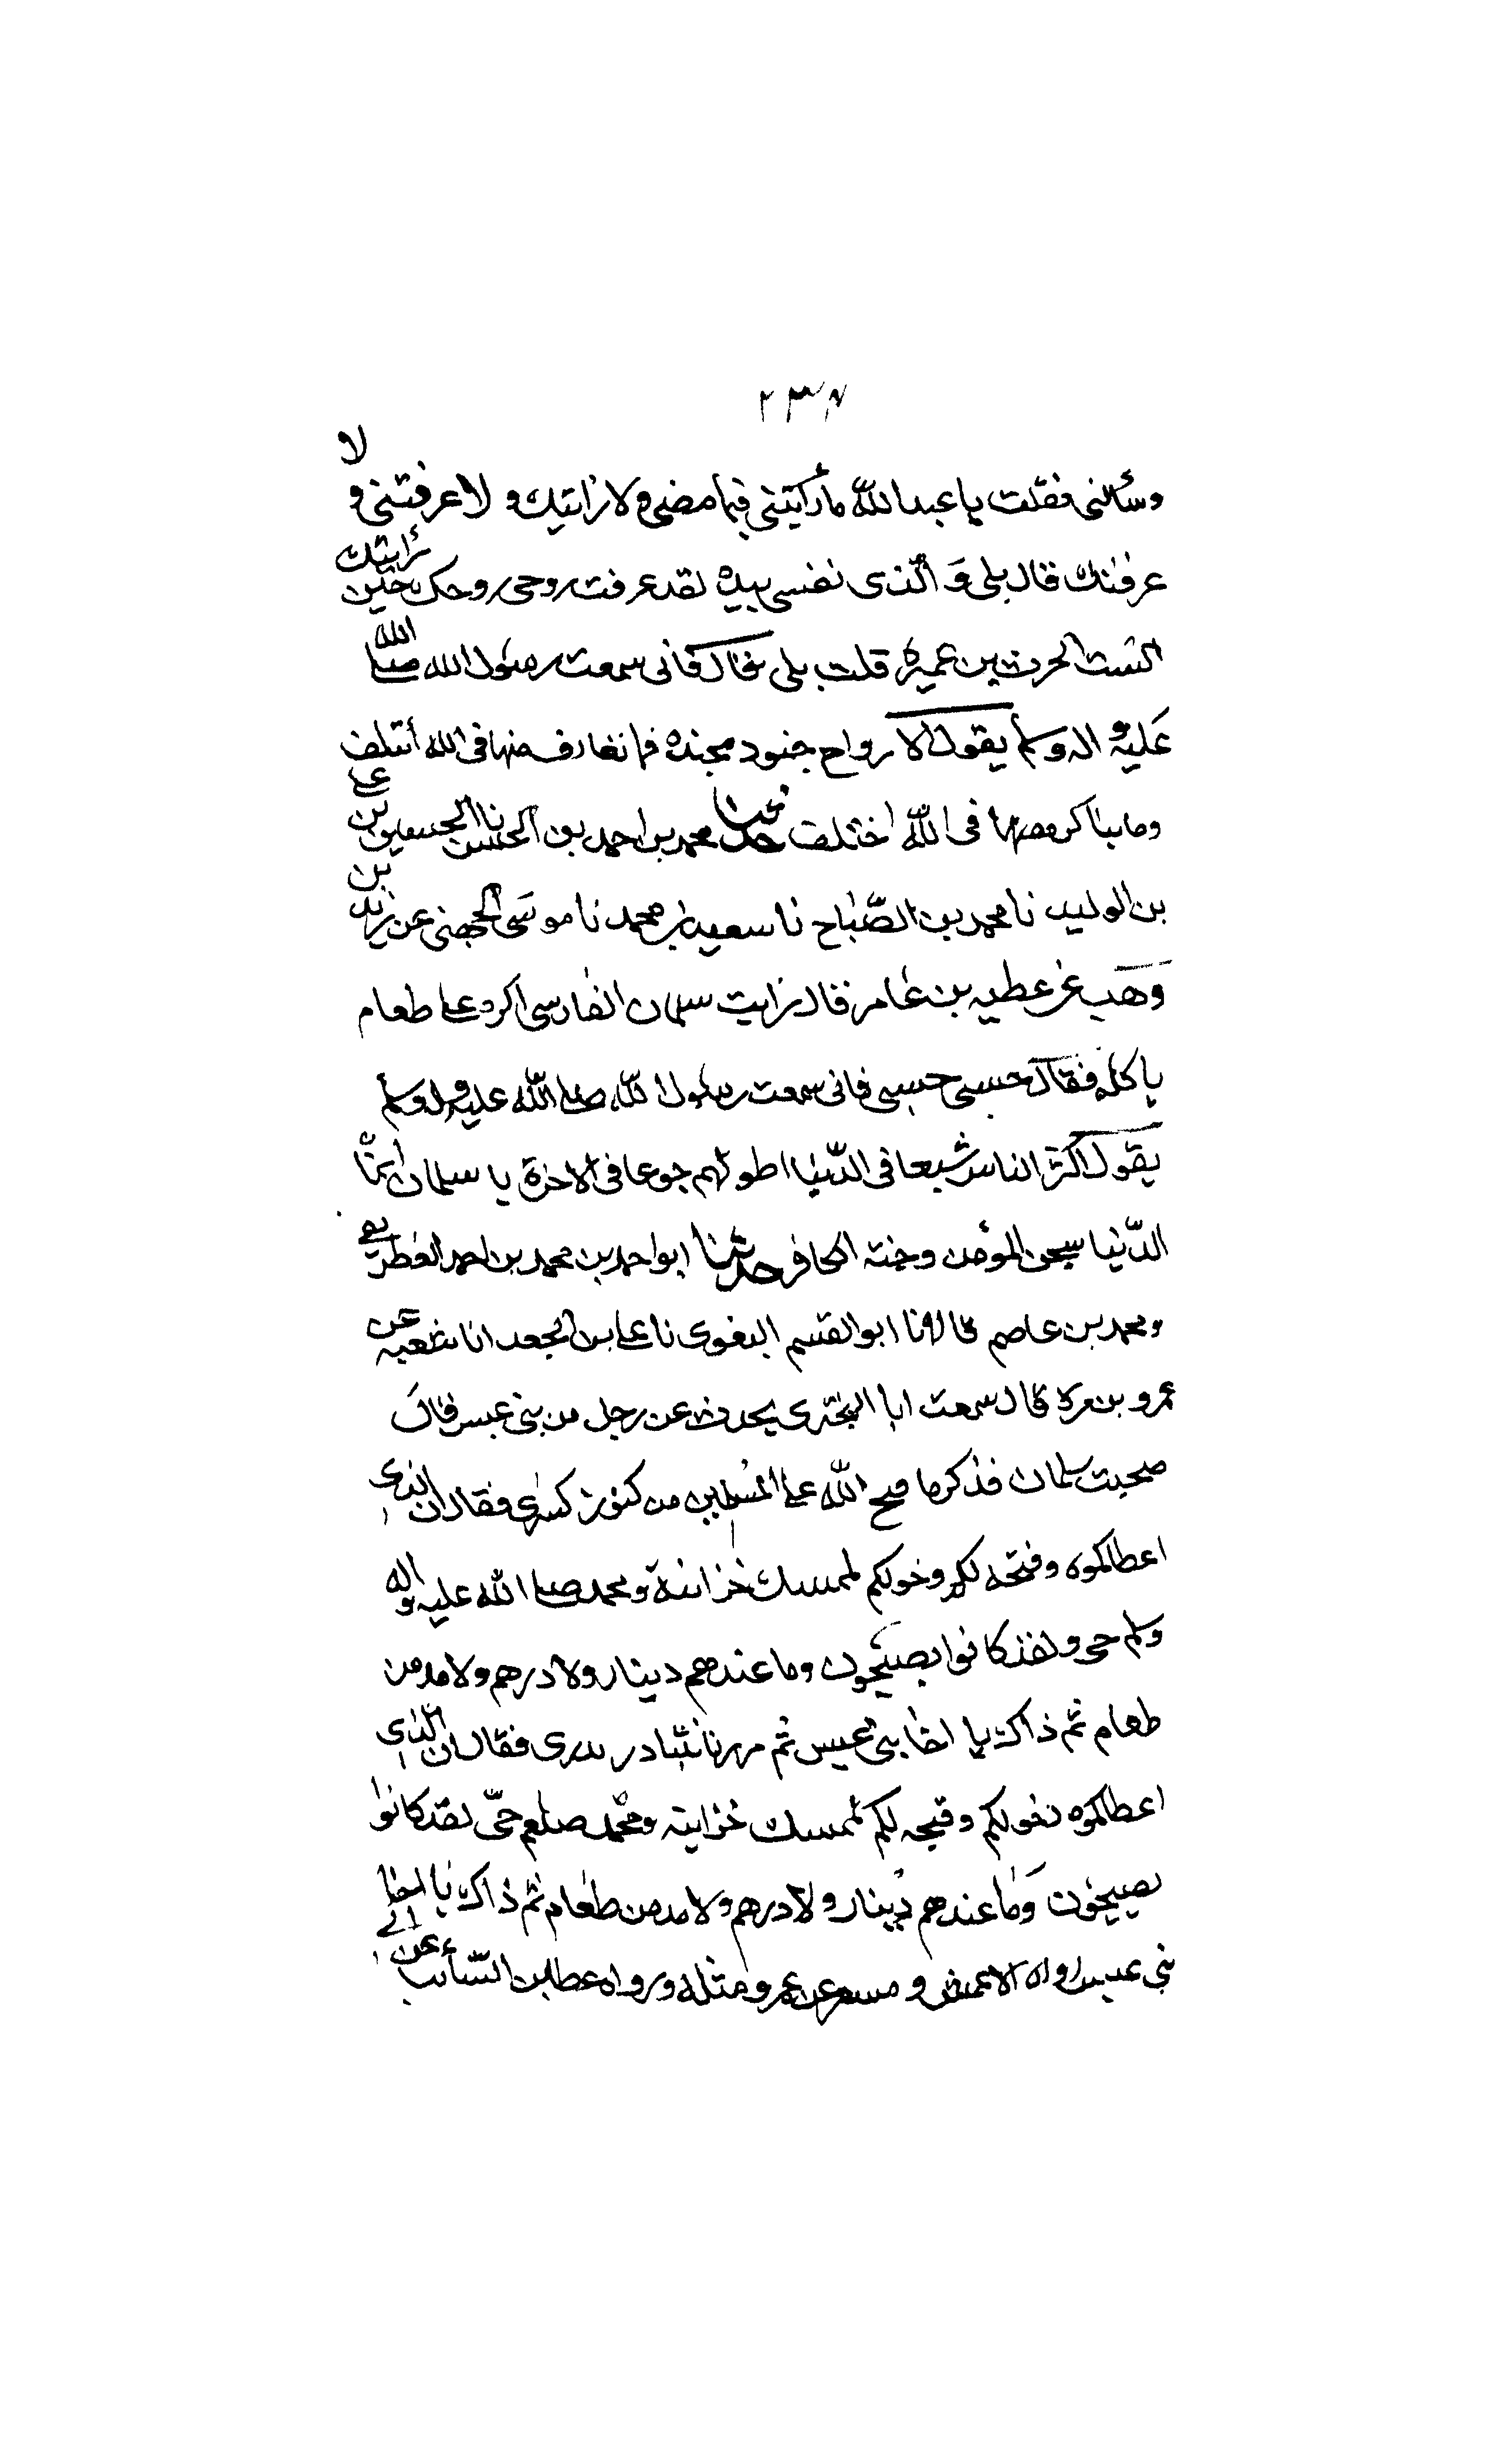 ٢٣٨
وسألنى فقلت يا عبد الله ما رأيتنى فيما مضى ولا رأيتك ولا عرفتنى ولا
عرفتك قال بلى والذى نفسى بيده لقد عرفت روحى روحك حين رأيتك
الست الحرث بن عميرة قلت بلى فقال فانى سمعت رسول الله صلى الله
عليه واله وسلم يقول الارواح جنود مجندة فما تعارف منها فى الله أئتلف
وما تناكر منها فى الله اختلف حدثنا محمد بن احمد بن الحسن نا الحسن بن على
بن الوليد نا محمد بن الصباح نا سعيد بن محمد نا موسى الجهنى عن زيد بن
وهب عن عطيه بن عامر قال رايت سلمان الفارسى اكره على طعام
ياكله فقال حسبى حسبى فانى سمعت رسول الله صلى الله عليه واله وسلم
يقول اكثر الناس شبعا فى الدنيا اطولهم جوعا فى الاخرة يا سلمان انما
الدنيا سجن المؤمن وجنة الكافر حدثنا ابو احمد بن محمد بن احمد الغطريفى
ومحمد بن عاصم قالا نا ابو القسم البغوى نا على بن الجعد انا شعبه عن
عمرو بن مرة قال سمعت ابا البخترى يحدث عن رجل من بنى عبس قال
صحبت سلمان فذكر ما فتح الله على المسلمين من كنوز كسرى فقال ان الذى
اعطاكموه وفتحه لكم وخولكم لممسك خزائنة ومحمد صلى الله عليه واله
وسلم حى ولقد كانوا يصبحون وما عندهم دينار ولا درهم ولا مد من
طعام ثم ذاك يا اخا بنى عبس ثم مررنا ببيادر تدرى فقال ان الذى
اعطاكموه نخولكم وفتحه لكم لممسك خزاينه ومحمد صلعم حى لقد كانوا
يصبحون وما عندهم دينار ولا درهم ولا مد من طعام ثم ذاك يا اخا
بنى عبس رواه الاعمش ومسعر عن عمرو مثله ورواه عطا بن السائب عن